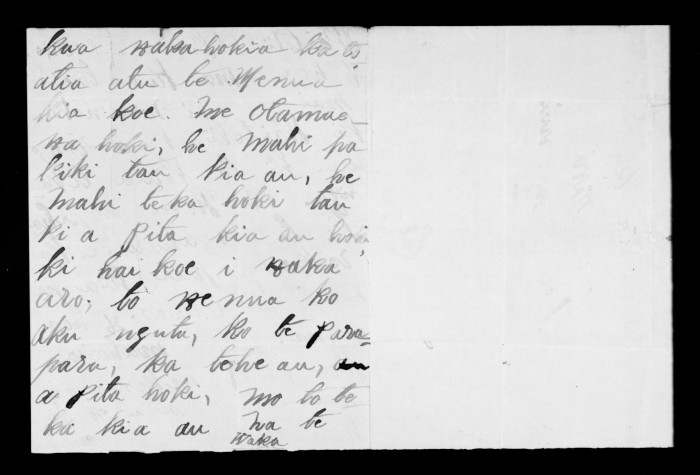 kua waka hokia ka to
atia atu te Wenua
kia koe. Me Otamae
wa hoki, he Mahi pa
kiki tau kia au, he
Mahi teka hoki tau
ki a Pita kia au hoki
ki hai koe i waka
aro, to wenua ko
aku ngutu, ko te para
para, ka tohe au,
a Pita hoki, mo to te
ka kia au na te
waka